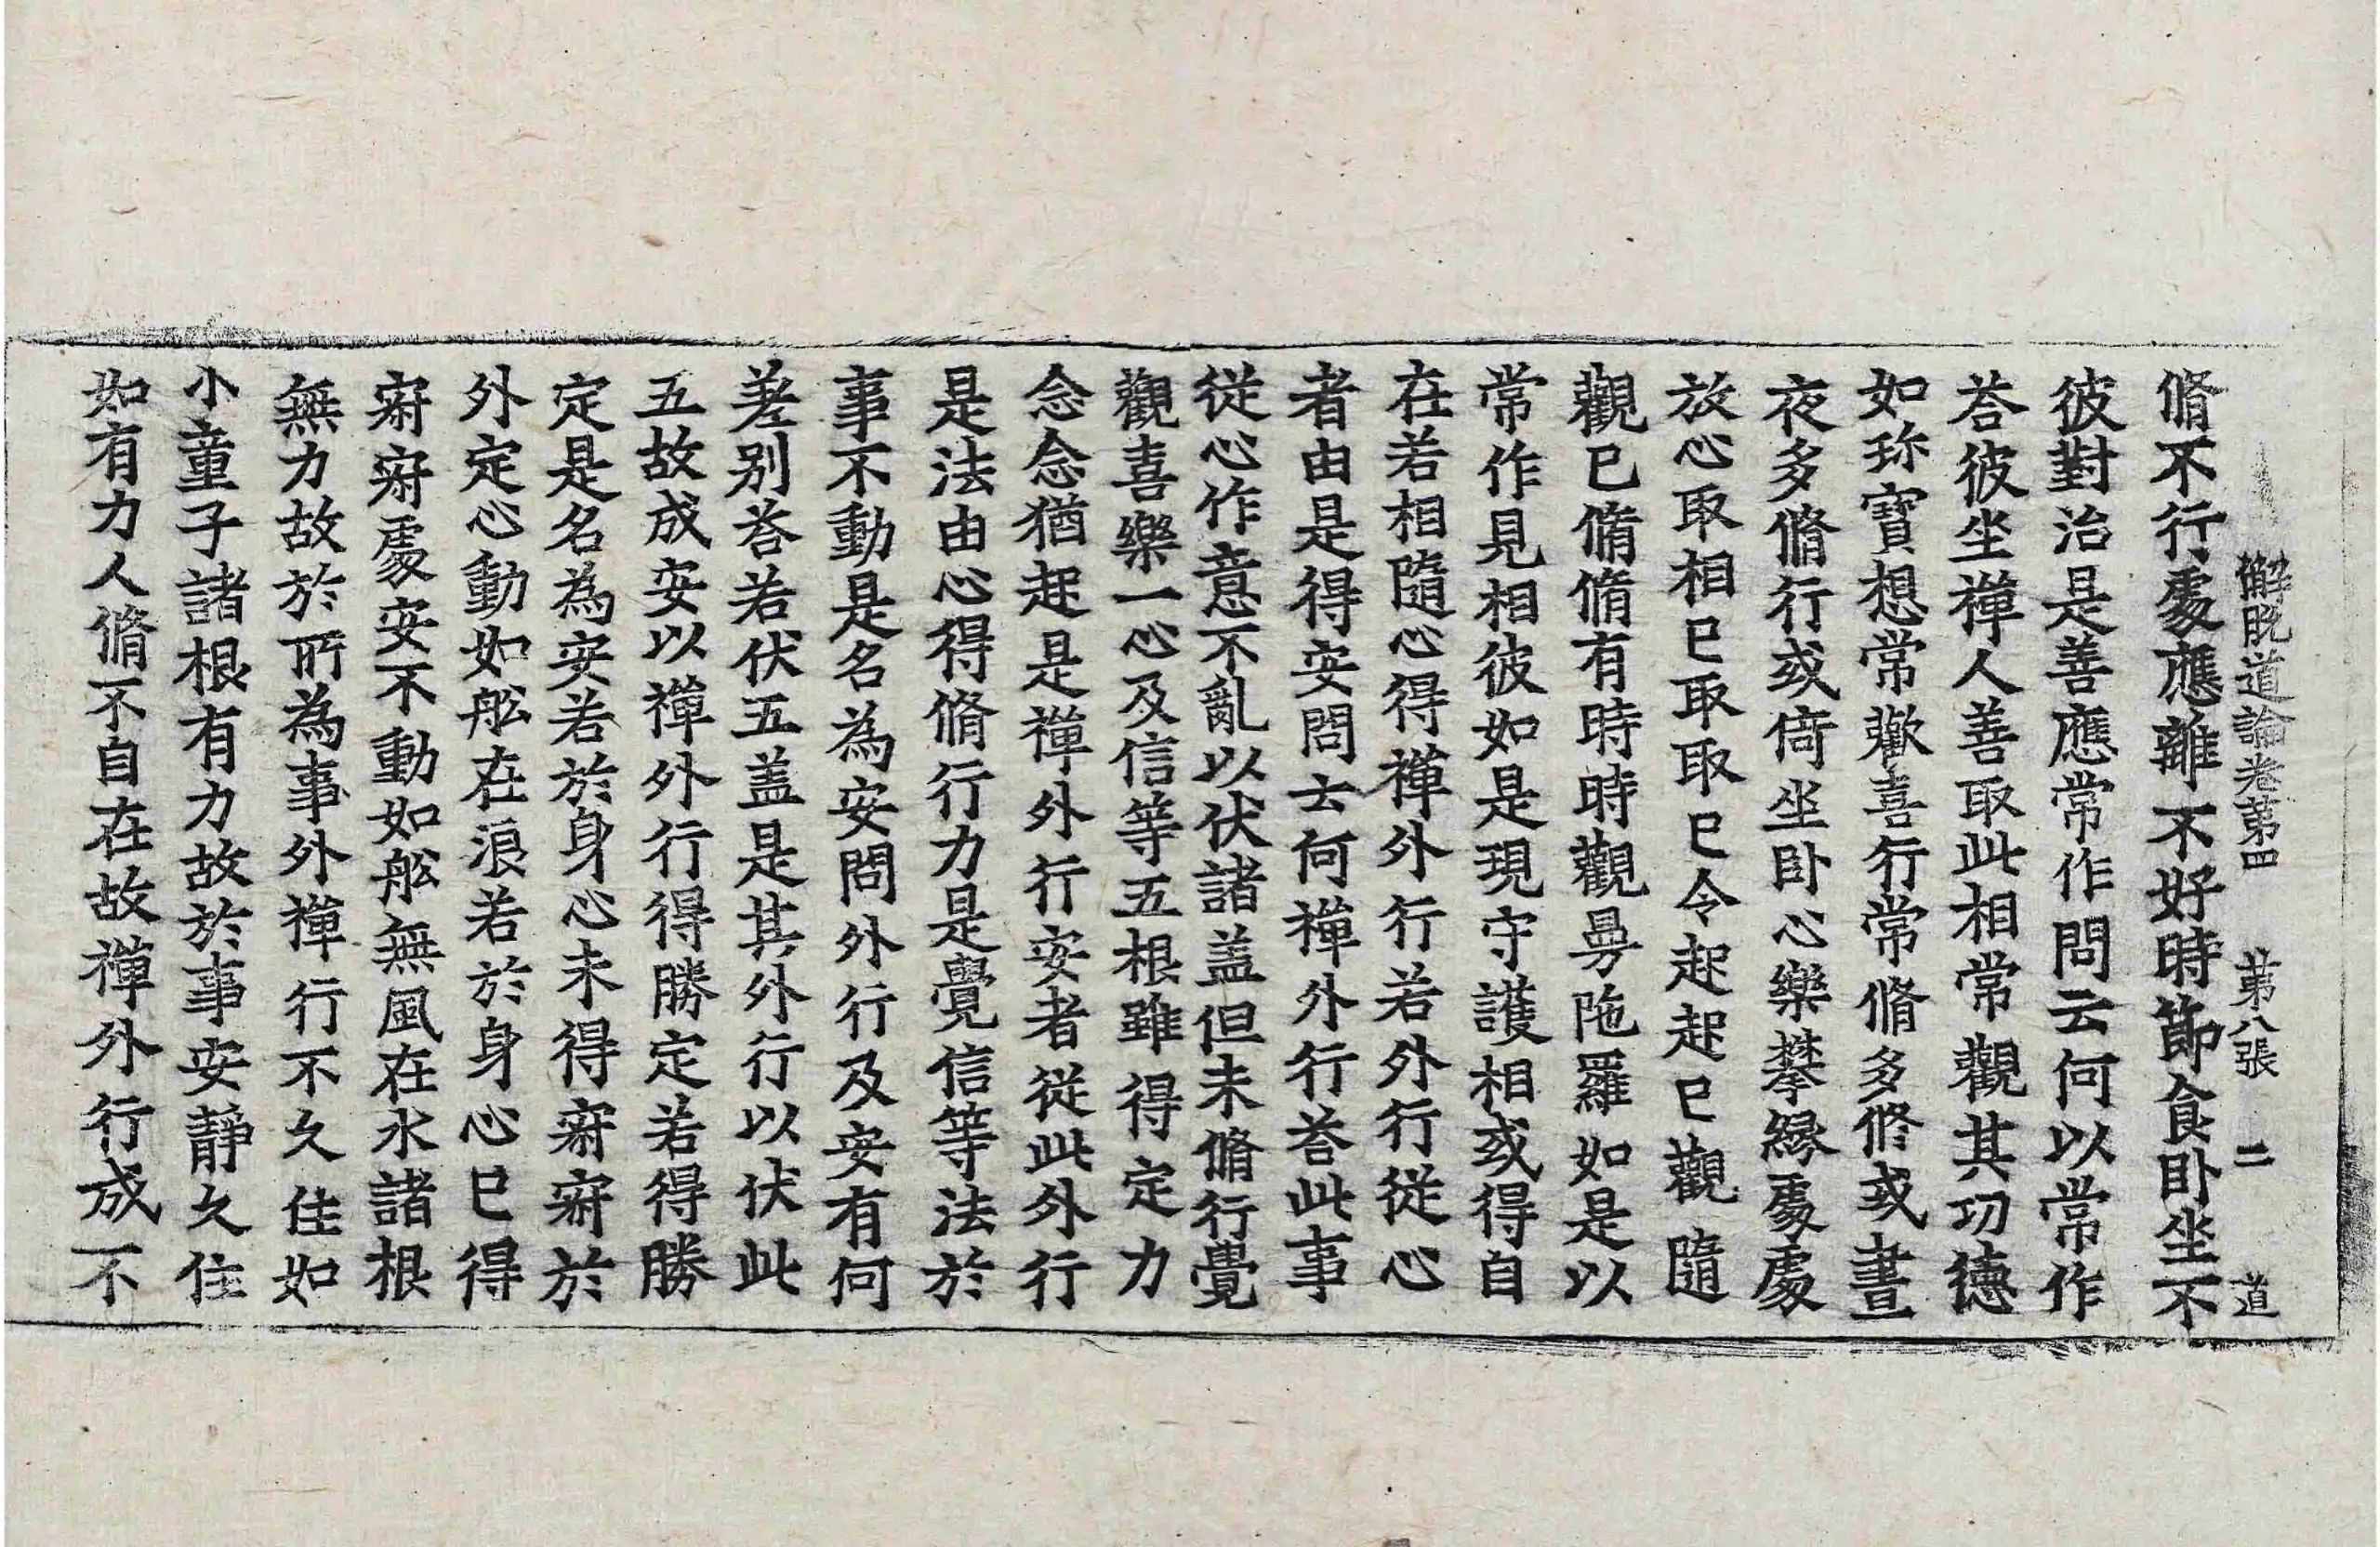 解脫道論卷第四 第八張 二 道
脩不行處應離不好時節食卧坐不
彼對治是善應常作問云何以常作
荅彼坐禪人善取此相常觀其功德
如珎寶想常歡喜行常脩多修或晝
夜多脩行或倚坐卧心樂攀緣處處
放心取相已取取已令起起已觀隨
觀已脩脩有時時觀曼陁羅如是以
常作見相彼如是現守護相或得自
在若相隨心得禪外行若外行從心
者由是得安問云何禪外行荅此事
從心作意不亂以伏諸盖但未脩行覺
觀喜樂一心及信等五根雖得定力
念念猶起是禪外行安者從此外行
是法由心得脩行力是覺信等法於
事不動是名為安問外行及安有何
差别荅若伏五盖是其外行以伏此
五故成安以禪外行得勝定若得勝
定是名為安若於身心未得寂寂於
外定心動如舩在浪若於身心已得
寂寂處安不動如舩無風在水諸根
無力故於所為事外禪行不久住如
小童子諸根有力故於事安靜久住
如有力人脩不自在故禪外行成不